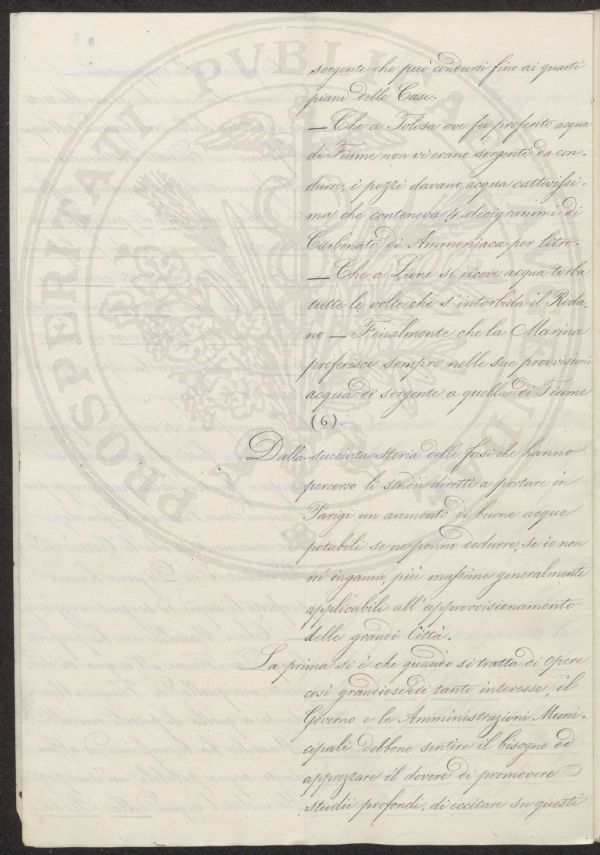 sorgente che può condursi fino ai quarti
piani delle Case.
— Che a Tolosa ove fu preferito acqua
di Fiume non vi erano sorgenti da con-
durre, i pozzi davano acqua cattivissi-
ma che conteneva 4 decigrammi di
Carbonato di Ammoniaca per litro.
— Che a Lione si riceve acqua torba
tutte le volte che s'intorbida il Roda-
no — Finalmente che la Marina
preferisce sempre nelle sue provvisioni
acqua di sorgente a quella di Fiume
(6).
Dalla succinta storia delle fasi che hanno
percorso li studii diretti a portare in
Parigi un aumento di buone acque
potabili se ne ponno dedurre, se io non
m'inganno, più massime generalmente
applicabili all'approvvisionamento
delle grandi Città.
La prima si è che quando si tratta di opere
così grandiose e di tanto interesse, il
Governo e le Amministrazioni Muni-
cipali debbono sentire il bisogno ed
apprezzare il dovere di promovere
studii profondi, di eccitare su questi
PROSPERITATI PVBLICAE